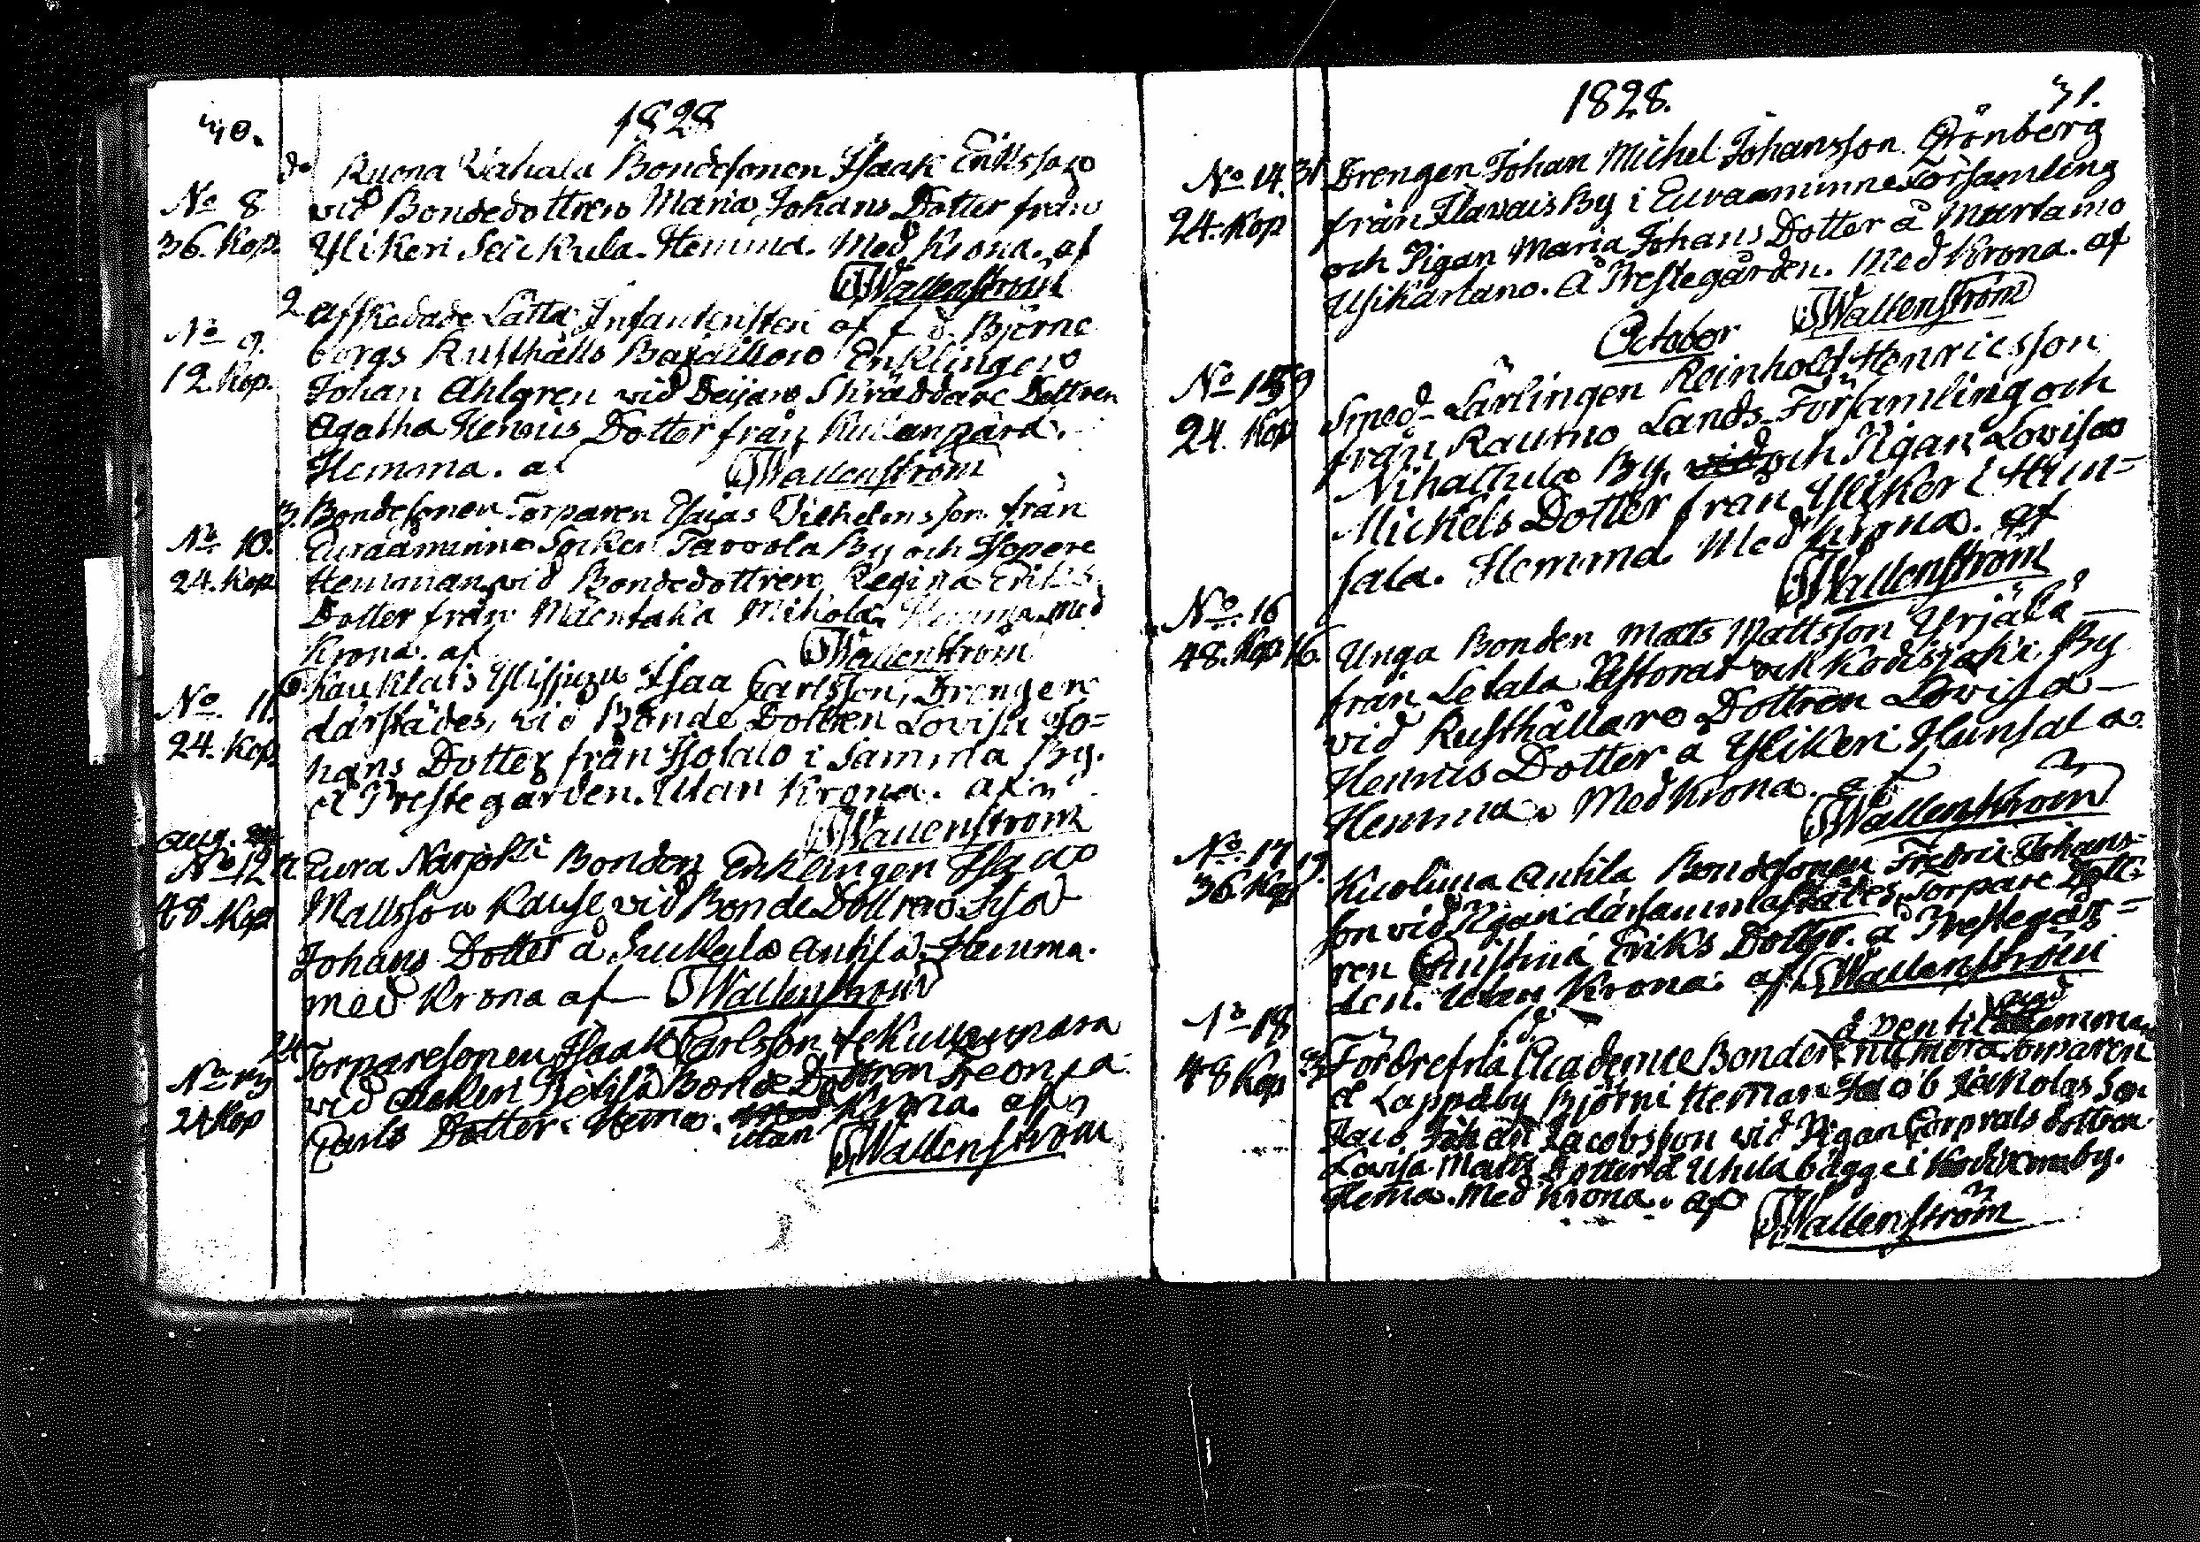 40.
1828
No 8
36. Kop.
do Ruona Wahala Bondesonen Isaak Eriksson
vid Bondedottren Maria Johans Dotter från
Ylikeri Seickula. Hemma. Med Krona. af
SWallenström
No 9.
12 Kop.
2 Afskedade Lätta Infanteristen af f. d. Björne
borgs Rusthålls Bataillon Enklingen
Johan Ahlgren vid Skräddare Dottren
Agatha Henrics Dotter från Kullanpärä.
Hemma. af SWallenström
No 10.
24. Kop
3. Bondesonen Torparen Esaias Vilhelmsson från
Euraåminne Socken Tavvola By och
Hemman vid Bondedottren Regina Eriks
Dotter från Mäentaka Mikola. Hemma. Med
Krona. af SWallenström
No 11.
24. Kop.
Kauklais Ylisjuqu Isaac Carlsson, Drengen
därstädes, vid Bonde Dottren Lovisa Jo=
hans Dotter från Isotalo i Samma By.
å Prestegården. Utan Krona. af
SWallenström
Aug.
No 12
48 Kop
Eura Narjoki Bonden Enklingen Isaac
Mattsson Kause vid Bonde Dottren
Johans Dotter å Antila. Hemma.
med Krona af SWallenström
No 13
24 Kop
24 Torparesonen Isaak Carlsson å Kullanpärä
vid Bonde Dottren
Carls Dotter. Hema. utan Krona. af
SWallenström
1828. 41.
No 14.
24. Kop
31 Drengen Johan Michel Johansson Grönberg
från Flavais By i Euraaminne Församling
och Pigan Maria Johans Dotter å Martamo
Ylikartano. å Prestegården. Med Krona. af
SWallenström
October
No 15
24. Kop
9 Smed-Lärlingen Reinhold Henricsson
från Raumo Lands Församling och
Nihattula By, och Pigan Lovisa
Michels Dotter från Ylikeri Hun=
sala. Hemma Med Krona. af
SWallenström
No 16
48. Kop
16. Unga Bonden Matts Mattsson Yrjälä
från Letala Pastorat och Kodisjoki By
vid Rusthållare Dottren Lovisa
Henrics Dotter å Ylikeri Hunsala
Hemma. Med Krona. af
SWallenström
No 17
36 Kop
19. Kuolima Antila Bondesonen Fredric Johans=
son vid Pigan därsammastädes, Torpare Dott=
ren Christina Eriks Dotter. å Prestegår=
den. Utan Krona. af SWallenström
No 18
48 Kop
å Pentilä Hemman
Förbrefna Academie Bonden numera Torparen
å Lappäby Björni Heman Jacob Jackolas Son
Johan Jacobsson vid Pigan Corprals dottren
Lovisa Matts Dotter å Uhila bägge i by.
Hema. Med Krona. af SWallenström